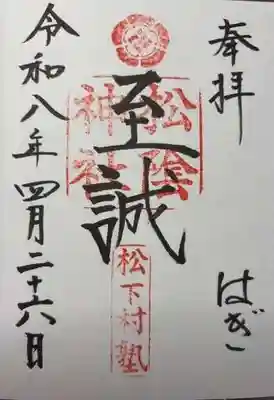 奉拝
はぎ
松陰
神社
至誠
松下村塾
令和八年四月二十六日